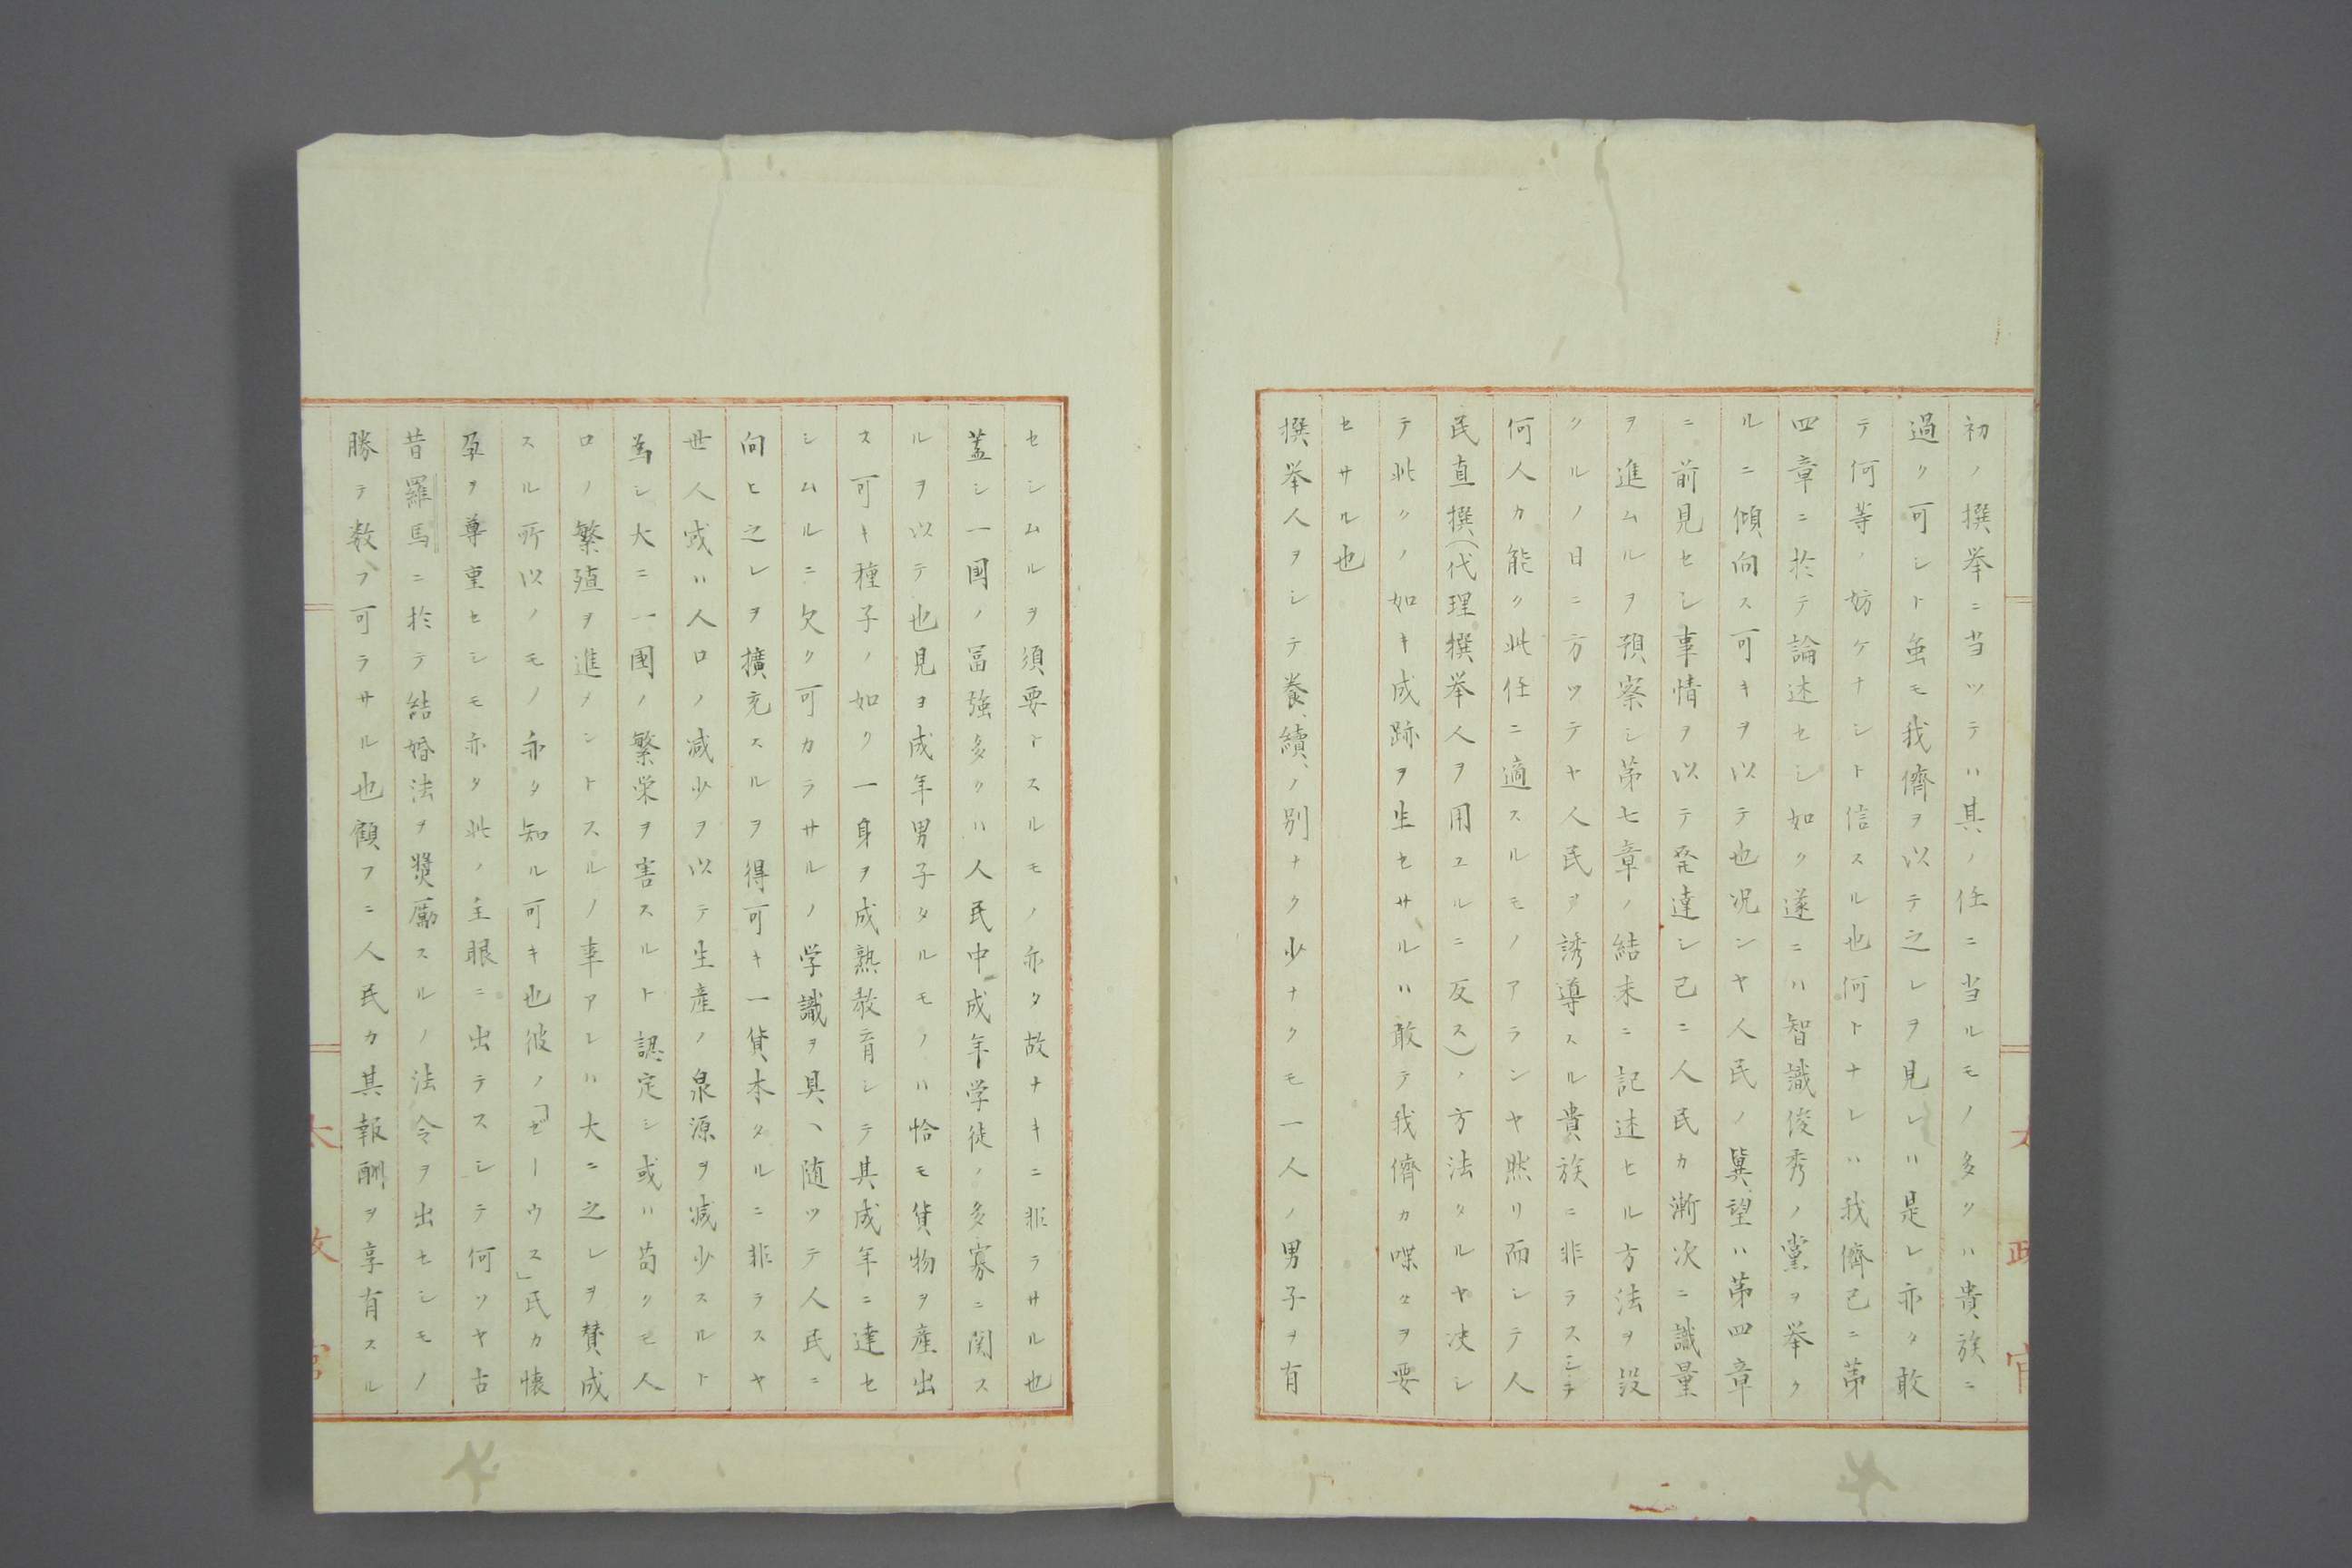 初ノ撰挙ニ当ツテハ其ノ任ニ当ルモノ多クハ貴族ニ
過ク可シト虽モ我儕ヲ以テ之レヲ見レハ是レ亦タ敢
テ何等ノ妨ケナシト信スル也何トナレハ我儕已ニ第
四章ニ於テ論述セシ如ク遂ニハ智識俊秀ノ黨ヲ挙ク
ルニ傾向ス可キヲ以テ也况ンヤ人民ノ冀望ハ第四章
ニ前見セシ事情ヲ以テ発達シ已ニ人民カ漸次ニ識量
ヲ進ムルヲ預察シ第七章ノ結末ニ記述セル方法ヲ設
クルノ日ニ方ツテヤ人民ヲ誘導スル貴族ニ非ラスシテ
何人カ能ク此任ニ適スルモノアランヤ然リ而シテ人
民直撰(代理撰挙人ヲ用ユルニ反ス)ノ方法タルヤ决シ
テ此クノ如キ成跡ヲ生セサルハ敢テ我儕カ喋々ヲ要
セサル也
撰挙人ヲシテ養續ノ別ナク少ナクモ一人ノ男子ヲ有
太政官
セシムルヲ須要トスルモノ亦タ故ナキニ非ラサル也
蓋シ一国ノ冨強多クハ人民中成年学徒ノ多寡ニ関ス
ルヲ以テ也見ヨ成年男子タルモノハ恰モ貨物ヲ産出
ス可キ種子ノ如ク一身ヲ成熟教育シテ其成年ニ達セ
シムルニ欠ク可カラサルノ学識ヲ具ヘ随ツテ人民ニ
向ヒ之レヲ擴充スルヲ得可キ一貨本タルニ非ラスヤ
世人或ハ人口ノ减少ヲ以テ生産ノ泉源ヲ减少スルト
為シ大ニ一國ノ繁栄ヲ害スルト認定シ或ハ苟クモ人
口ノ繁殖ヲ進メントスルノ事アレハ大ニ之レヲ賛成
スル所以ノモノ亦タ知ル可キ也彼ノ「ゼーウス」民カ懐
孕ヲ尊重セシモ亦タ此ノ主眼ニ出テスシテ何ソヤ古
昔羅馬ニ於テ結婚法ヲ奨励スルノ法令ヲ出セシモノ
勝テ数フ可ラサル也顧フニ人民カ其報酬ヲ享有スル
太政官